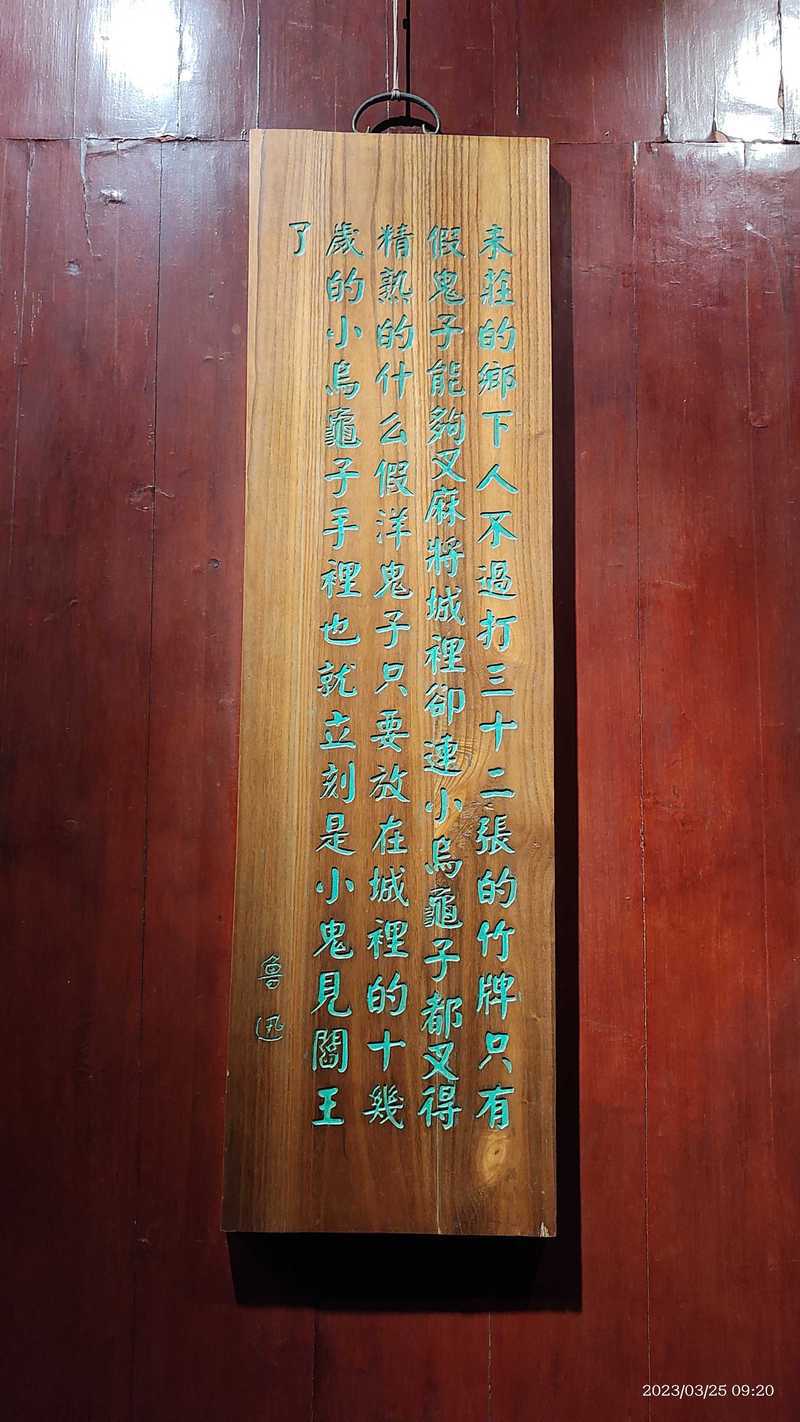 未莊的鄉下人不過打三十二張的竹牌只有
假鬼子能夠叉麻將城裡卻連小烏龜子都叉得
精熟的什么假洋鬼子只要放在城裡的十幾
歲的小烏龜子手裡也就立刻是小鬼見閻王
了
魯迅
2023/03/25 09:20